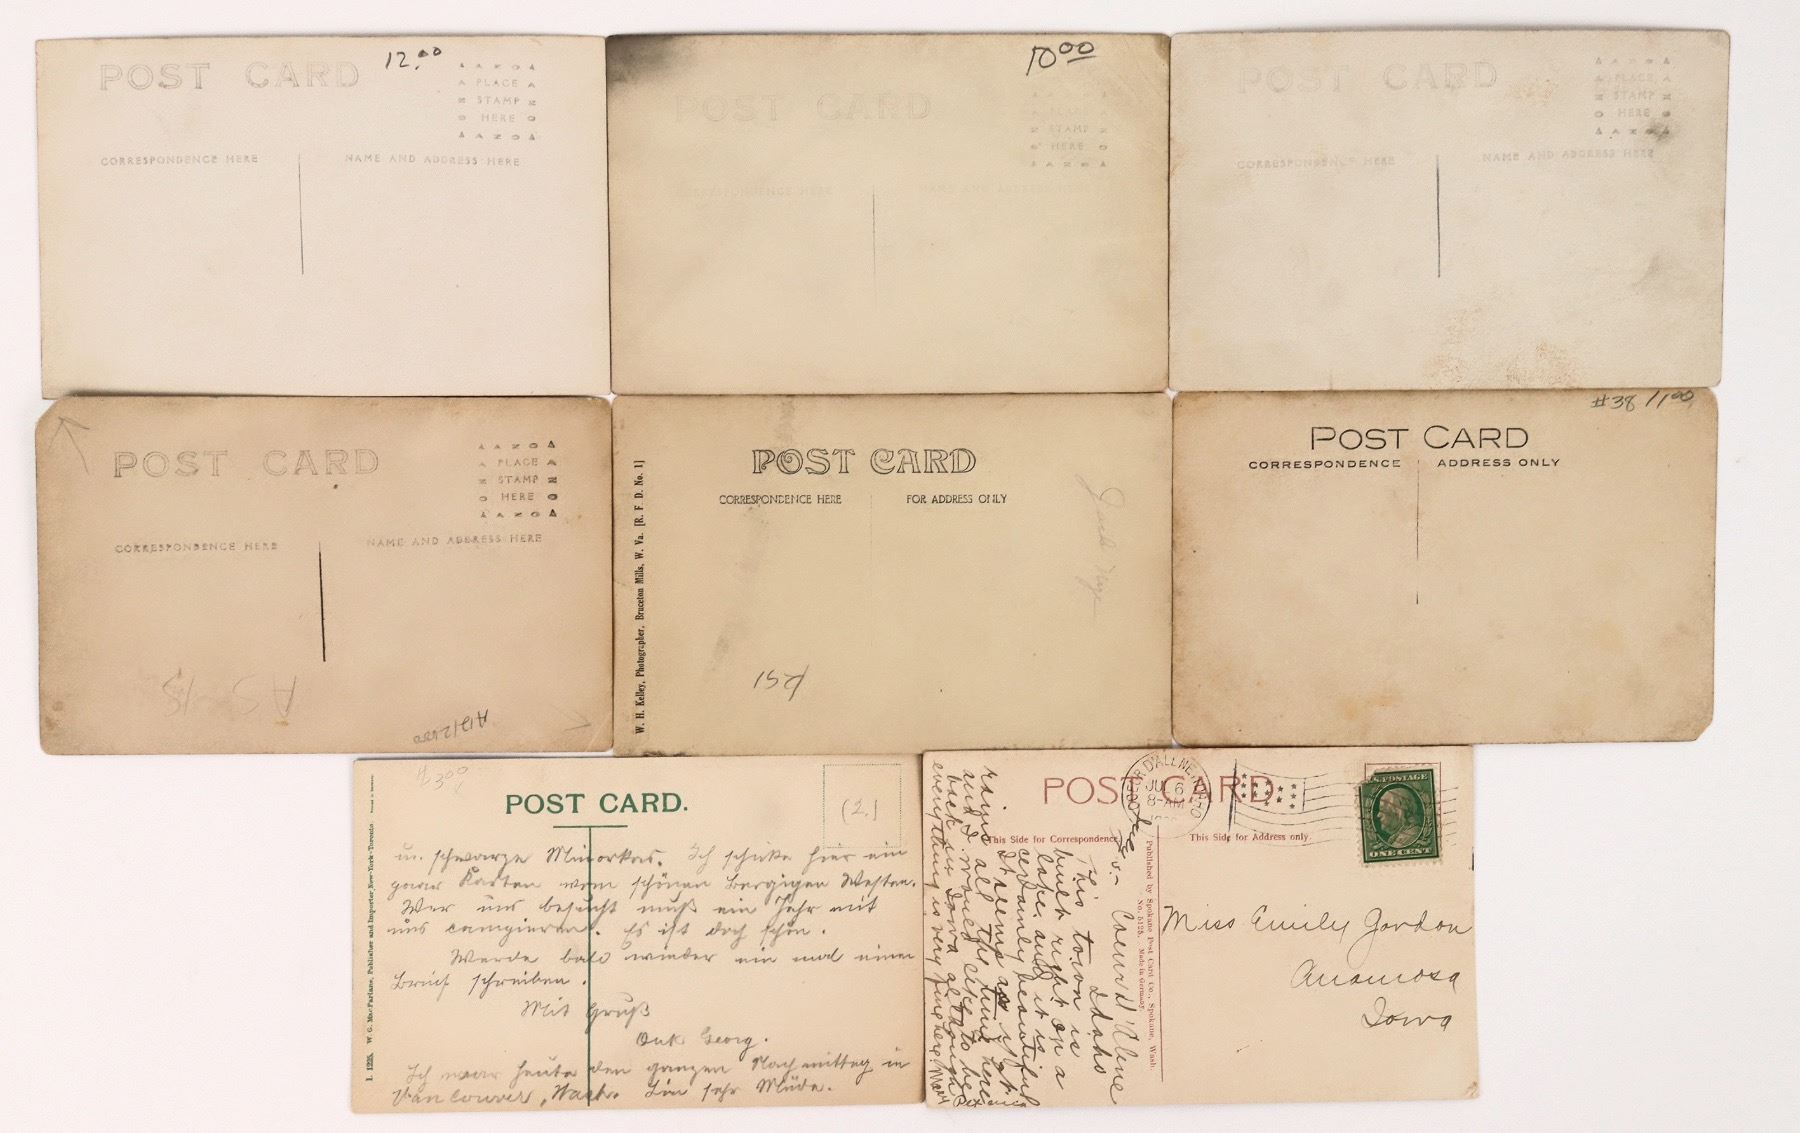 POST CARD
12.00
A A Z O A
A PLACE A
Z STAMP Z
O HERE O
A A Z O A
CORRESPONDENCE HERE
NAME AND ADDRESS HERE
POST CARD
10 00
PLACE
Z STAMP Z
O HERE O
A A Z O A
CORRESPONDENCE HERE
NAME AND ADDRESS HERE
POST CARD
A A Z O A
A PLACE A
Z STAMP Z
O HERE O
A A Z O A
CORRESPONDENCE HERE
NAME AND ADDRESS HERE
POST CARD
A A Z O A
A PLACE A
Z STAMP Z
O HERE O
A A Z O A
CORRESPONDENCE HERE
NAME AND ADDRESS HERE
POST CARD
CORRESPONDENCE HERE
FOR ADDRESS ONLY
W. H. Kelley, Photographer, Bruceton Mills, W. Va. [R. F. D. No. 1]
#38 11 00
POST CARD
CORRESPONDENCE
ADDRESS ONLY
300
POST CARD.
(2.)
I. 1225. W. G. MacFarlane, Publisher and Importer, New-York-Toronto.
u. schwarze Minorkas. Ich schicke hier ein
paar Karten vom schönen bergigen Westen.
Wer uns besucht muß ein Jahr mit
uns campieren. Es ist doch schön.
Werde bald wieder ein mal einen
Brief schreiben.
Mit Gruß
Onk Georg.
Ich war heute den ganzen Nachmittag in
Vancouver, Wash. Bin sehr Müde.
POST CARD
COEUR D'ALENE, IDAHO
JUL 6
8-AM
This Side for Correspondence
This Side for Address only.
Published by Spokane Post Card Co., Spokane, Wash.
No. 5125. Made in Germany.
U.S. POSTAGE
ONE CENT
Coeur d'Alene
Idaho
This town is
built right on a
lake and it is
certainly beautiful
It seems as if it
rains all the time here
and I would like to be
back in Iowa
everything is very fine here.
Miss Emily Gordon
Anamosa
Iowa